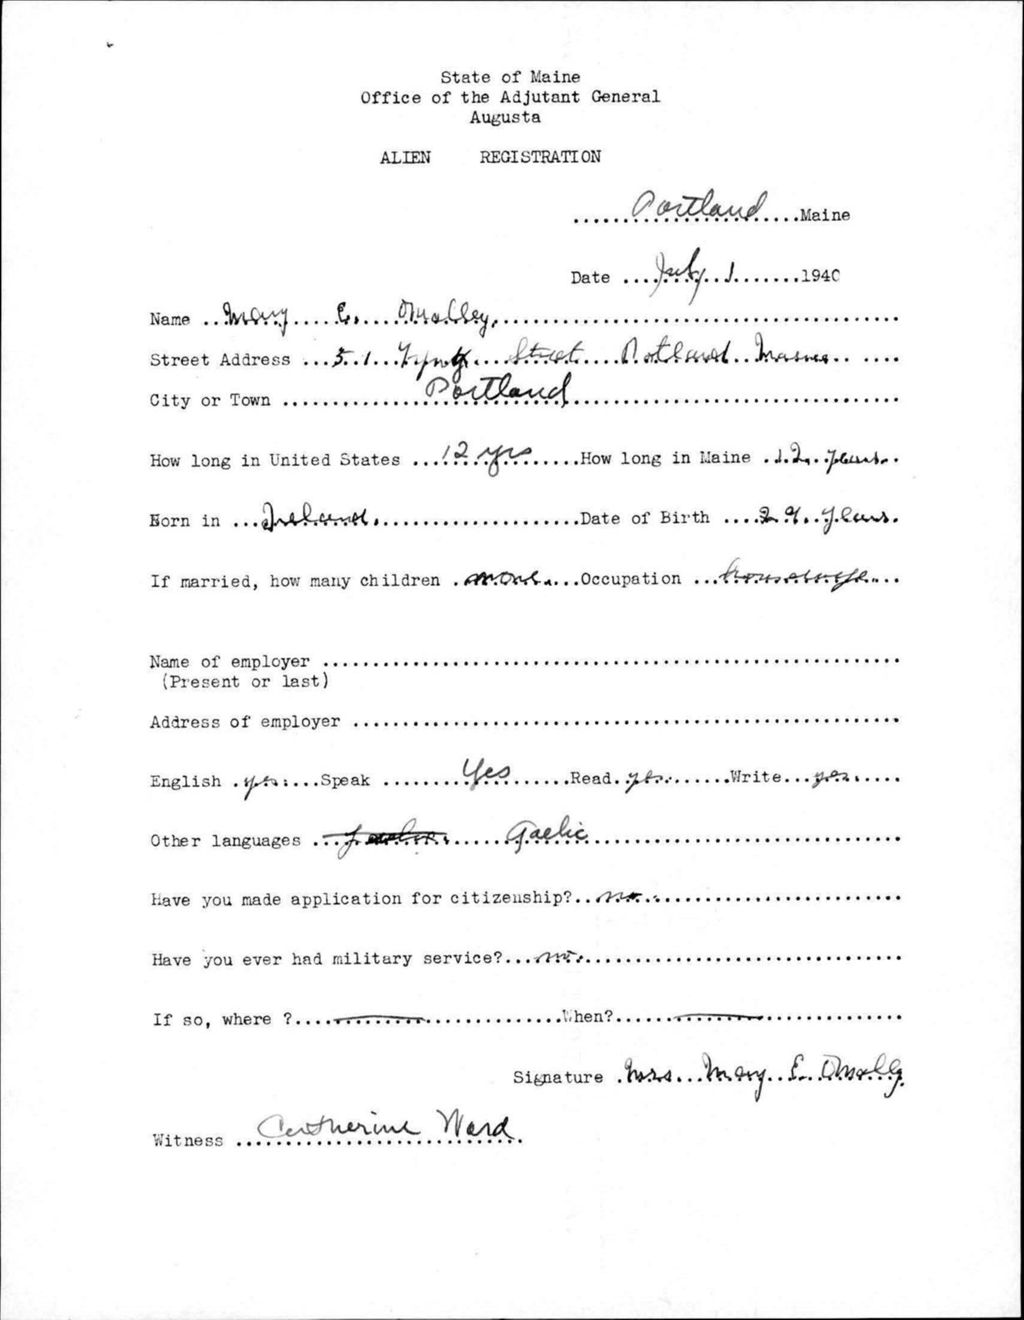 State of Maine
Office of the Adjutant General
Augusta
ALIEN REGISTRATION
......Portland.....Maine
Date ....July 1.......1940
Name ..Mary.....E.....OMalley.
Street Address ...51...Street....Portland..Maine.. ....
City or Town ..............Portland
How long in United States ...12 yrs........How long in Maine .12.years..
Born in ...Ireland.....................Date of Birth ....29..years.
If married, how many children .none....Occupation ...housewife....
Name of employer
(Present or last)
Address of employer
English .yes....Speak ........Yes.......Read.yes.......Write...yes.....
Other languages ............Gaelic
Have you made application for citizenship?..no.
Have you ever had military service?...no.
If so, where ?....———..............When?......———
Signature .Mrs...Mary..E..OMally.
Witness ..Catherine Ward